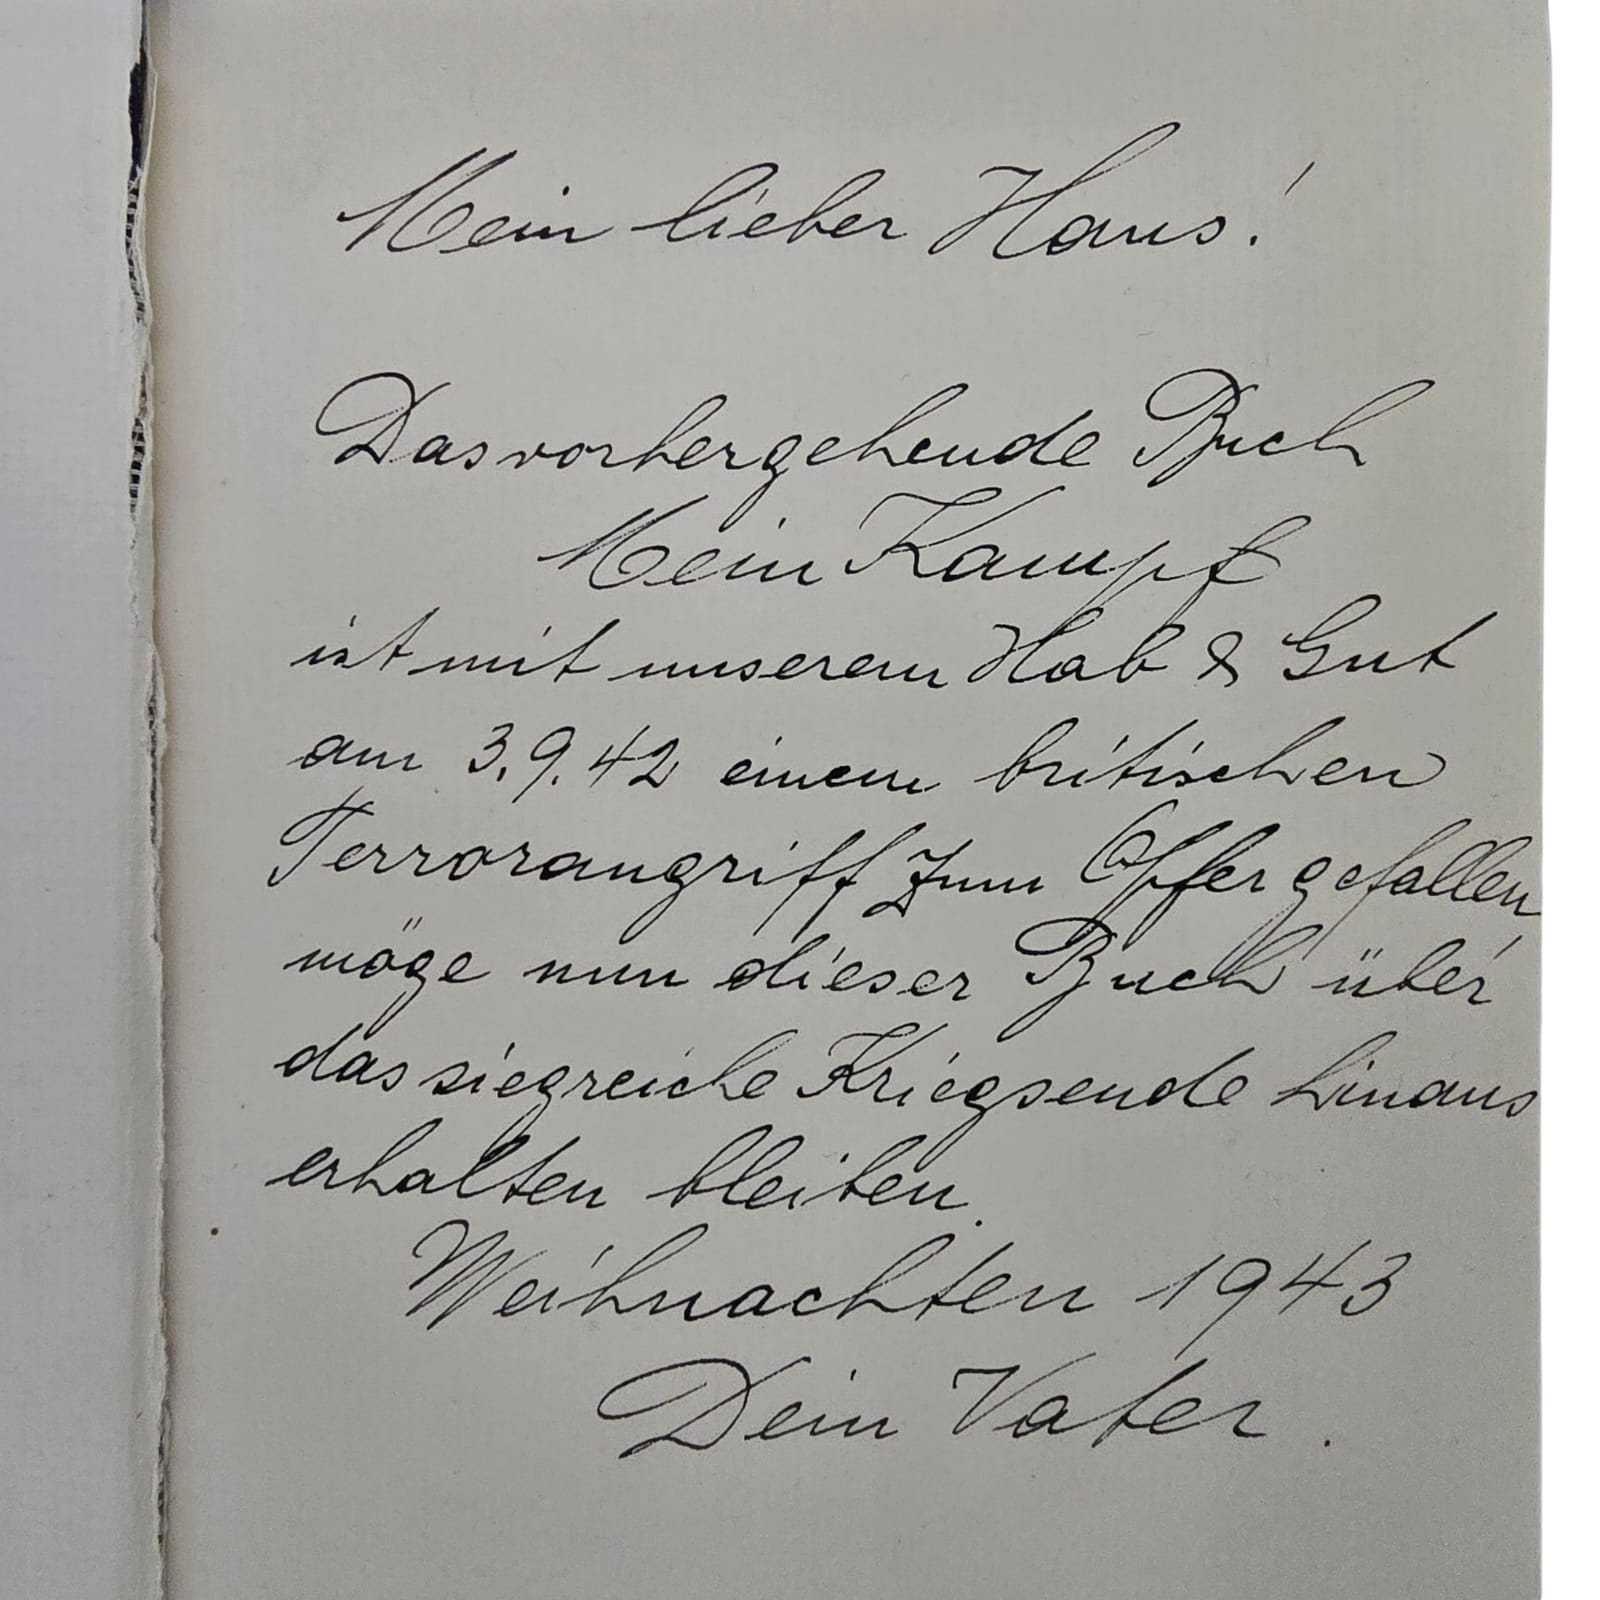 Mein lieber Hans!
Das vorhergehende Buch
Mein Kampf
ist mit unserem Hab & Gut
am 3.9.42 einem britischen
Terrorangriff zum Opfer gefallen,
möge nun dieser Buch über
das siegreiche Kriegsende hinaus
erhalten bleiben.
Weihnachten 1943
Dein Vater.